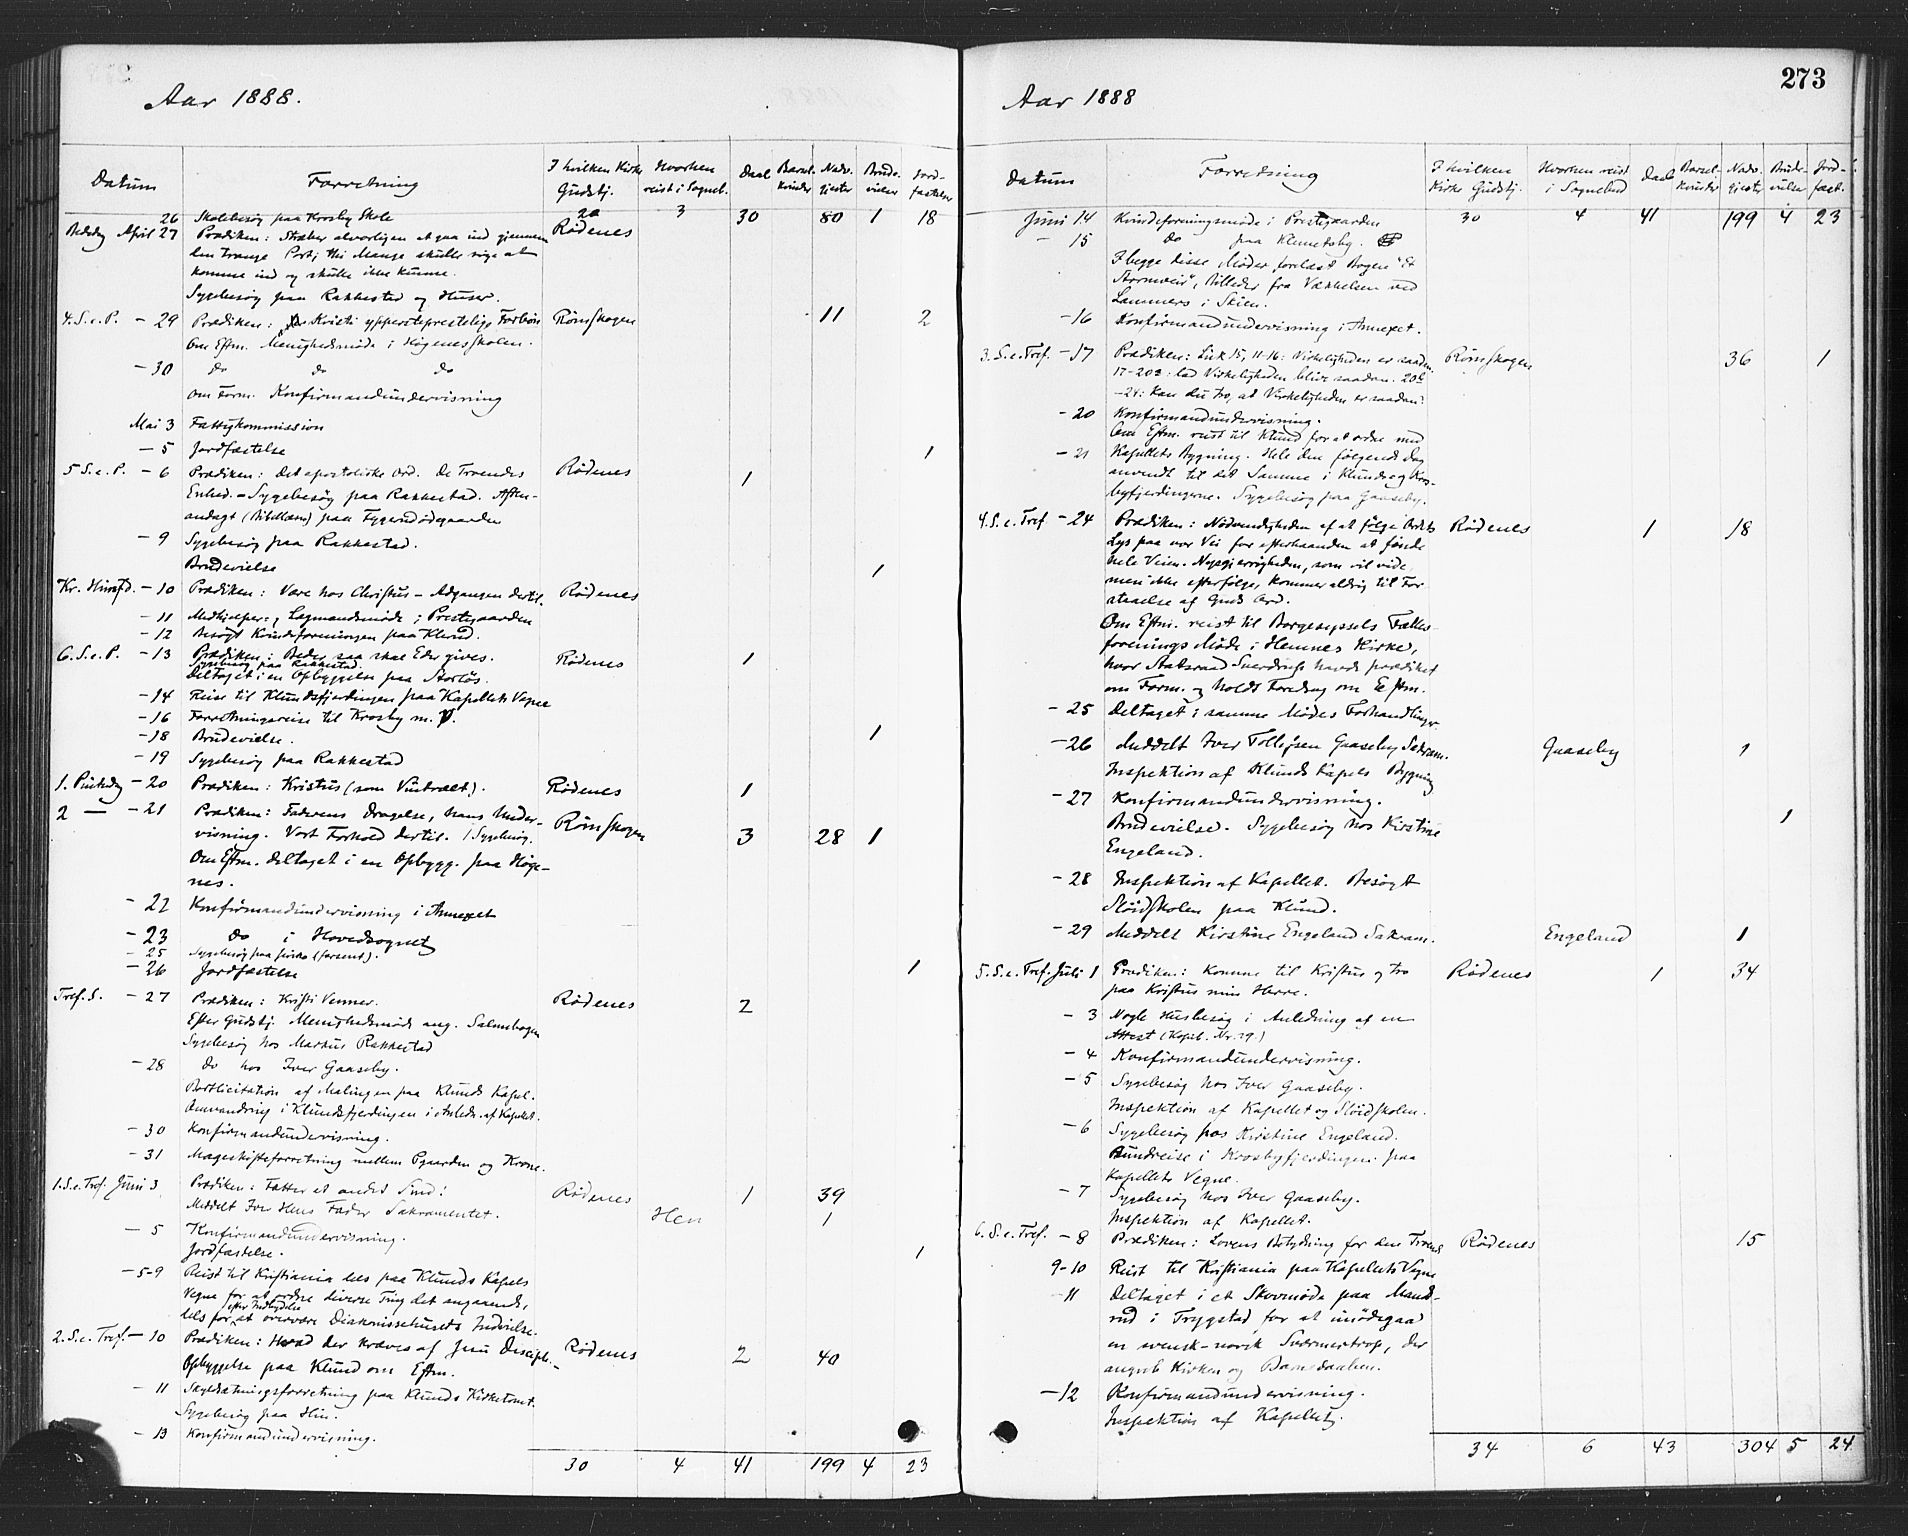 Aar 1888.
Datum
Forretning
I hvilken Kirke Gudstj.
Hvorhen reist i Sogneb.
Daab
Barsel-kvinder
Nadv.gjester
Brude-vielser
Jord-fæstelser
26 Skolebesøg paa Krosby Skole 22 3 30 80 1 18
Bededag April 27 Prædiken: Stræber alvorligen at gaa ind gjennem Rødenes
den trange Port; thi Mange skulle søge at
komme ind og skulle ikke kunne.
Sygebesøg paa Rakkestad og Huser.
4. S. e. P. – 29 Prædiken: Kristi ypperstepresteligs Forbøn Rømskogen 11 2
Om Eftm. Menighedsmøde i Høgenesskolen.
– 30 do do do
Om Form. Konfirmandundervisning
Mai 3 Fattigkommission
– 5 Jordfæstelse 1
5 S. e. P. – 6 Prædiken: Det apostoliske Ord. De Troendes Rødenes 1
Enhed. – Sygebesøg paa Rakkestad. Aften-
andagt (Bibellæsn) paa
– 9 Sygebesøg paa Rakkestad.
Brudevielse 1
Kr. Himfd. – 10 Prædiken: Være hos Christus – Adgangen dertil. Rødenes
– 11 Medhjælper- & Lagmandsmøde i Prestegaarden
– 12 Besøgt Kvindeforeningen paa Klund.
6. S. e. P. – 13 Prædiken: Beder saa skal Eder gives. Rødenes 1
Sygebesøg paa Rakkestad.
Deltaget i en Opbyggelse paa
– 14 Reise til Klundsfjerdingen paa Kapellets Vegne
– 16 Forretningsreise til Krosby m. V.
– 18 Brudevielse. 1
– 19 Sygebesøg paa Rakkestad
1. Pintsdag – 20 Prædiken: Kristus (som Vintræet). Rødenes 1
2 — – 21 Prædiken: Faderens Dragelse, hans Under- Rømskogen 3 28 1
visning. Vort Forhold dertil. 1 Sygebesøg.
Om Eftm. deltaget i en Opbygg. paa Høge-
nes.
– 22 Konfirmandundervisning i Annexet
– 23 do i Hovedsognet
– 25 Sygebesøg paa
– 26 Jordfæstelse 1
Tref. S. – 27 Prædiken: Kristi Venner. Rødenes 2
Efter Gudstj. Menighedsmøde ang. Salmebogen
Sygebesøg hos Markus Rakkestad
– 28 do hos Iver Gaaseby.
Bortlicitation af Malingen paa Klunds Kapel.
Omvandring i Klundsfjerdingen i Anledn. af Kapellet.
– 30 Konfirmandundervisning.
– 31 Mageskifteforretning mellem Pgaarden og Krone.
1. S. e. Tref. Juni 3 Prædiken: Fatter et andet Sind! Rødenes 1 39
Meddelt Iver Hens Fader Sakramentet. Hen 1
– 5 Konfirmandundervisning.
Jordfæstelse. 1
– 5-9 Reist til Kristiania dels paa Klunds Kapels
Vegne for at ordne diverse Ting det angaaende,
dels for efter Indbydelse at overvære Diakonissehusets Indvielse.
2. S. e. Tref. – 10 Prædiken: Hvad der kræves af Jesu Disciple. Rødenes 2 40
Opbyggelse paa Klund om Eftm.
– 11 paa Klunds Kirketomt.
Sygebesøg paa Hen.
– 13 Konfirmandundervisning.
30 4 41 199 4 23
273
Aar 1888
Datum
Forretning
I hvilken Kirke Gudstj.
Hvorhen reist i Sognebud
Daab
Barsel-kvinder
Nadv.gjester
Brude-vielse
Jord-fæst.
Juni 14 Kvindeforeningsmøde i Prestegaarden 30 4 41 199 4 23
– 15 do paa Klemetsby.
I begge disse Møder forelæst Bogen "Et
Stormveir", Billeder fra Vækkelsen ved
Lammers i Skien.
– 16 Konfirmandundervisning i Annexet.
3. S. e. Tref. – 17 Prædiken: Luk 15, 11-16: Virkeligheden er saadan. Rømskogen 36 1
17-20a: lad Virkeligheden blive saadan. 20b
–24: kan du tro, at Virkeligheden er saadan?
– 20 Konfirmandundervisning.
Om Eftm. reist til Klund for at ordne med
– 21 Kapellets Bygning. Hele den følgende Dag
anvendt til det Samme i Klunds og Kros-
byfjerdingerne. Sygebesøg paa Gaaseby.
4. S. e. Tref – 24 Prædiken: Nødvendigheden af at følge Ordets Rødenes 1 18
Lys paa vor Vei for efterhaanden at finde
hele Veien. Nysgjerrigheden, som vil vide,
men ikke efterfølge, kommer aldrig til For
staaelse af Guds Ord.
Om Eftm. reist til Borgesyssels Fælles-
forenings Møde i Hemnes Kirke,
hvor Statsraad Sverdrup havde prædiket
om Form. og holdt Foredrag om Eftm.
– 25 Deltaget i samme Mødes Forhandlinger
– 26 Meddelt Iver Tollefsen Gaaseby Sakram. Gaaseby 1
Inspektion af Klunds Kapels Bygning
– 27 Konfirmandundervisning.
Brudevielse. Sygebesøg hos Kirstine 1
Engeland.
– 28 Inspektion af Kapellet. Besøgt
Sløidskolen paa Klund.
– 29 Meddelt Kirstine Engeland Sakram. Engeland 1
5. S. e. Tref. Juli 1 Prædiken: Komme til Kristus og tro Rødenes 1 34
paa Kristus min Herre.
– 3 Nogle Husbesøg i Anledning af en
Attest (Kopib. Nr. 29.)
– 4 Konfirmandundervisning.
– 5 Sygebesøg hos Iver Gaaseby.
Inspektion af Kapellet og Sløidskolen.
– 6 Sygebesøg hos Kirstine Engeland.
Rundreise i Krosbyfjerdingen paa
Kapellets Vegne.
– 7 Sygebesøg hos Iver Gaaseby.
Inspektion af Kapellet.
6. S. e. Tref. – 8 Prædiken: Lovens Betydning for den Troende Rødenes 15
9-10 Reist til Kristiania paa Kapellets Vegne
11 Deltaget i et Skovmøde paa Mand-
rud i Trygstad for at imødegaa
en svensk-norsk Sværmertrop, der
angreb Kirken og Barnedaaben.
– 12 Konfirmandundervisning.
Inspektion af Kapellet.
34 6 43 304 5 24